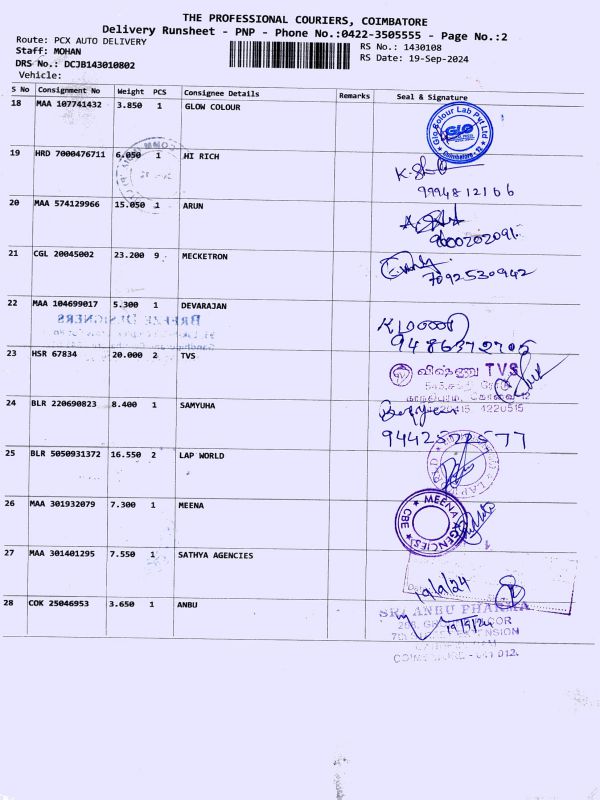 THE PROFESSIONAL COURIERS, COIMBATORE
Delivery Runsheet - PNP - Phone No.:0422-3505555 - Page No.:2
Route: PCX AUTO DELIVERY
RS No.: 1430108
Staff: MOHAN
RS Date: 19-Sep-2024
DRS No.: DCJB143010802
Vehicle:
S No Consignment No Weight PCS Consignee Details Remarks Seal & Signature
18 MAA 107741432 3.850 1 GLOW COLOUR
Glo Colour Lab Pvt Ltd
GLO
Coimbatore - 12
19 HRD 7000476711 6.050 1 HI RICH
9994812166
20 MAA 574129966 15.050 1 ARUN
9600202091
21 CGL 20045002 23.200 9 MECKETRON
7092530942
22 MAA 104699017 5.300 1 DEVARAJAN
BREEZE DESIGNERS
9486372705
23 HSR 67834 20.000 2 TVS
விஷ்ணு TVS
24 BLR 220690823 8.400 1 SAMYUHA
4220415, 4220515
25 BLR 5050931372 16.550 2 LAP WORLD
26 MAA 301932079 7.300 1 MEENA
MEENA AGENCIES
CBE
27 MAA 301401295 7.550 1 SATHYA AGENCIES
19/9/24
28 COK 25046953 3.650 1 ANBU
SRI ANBU PHARMA
19/9/24